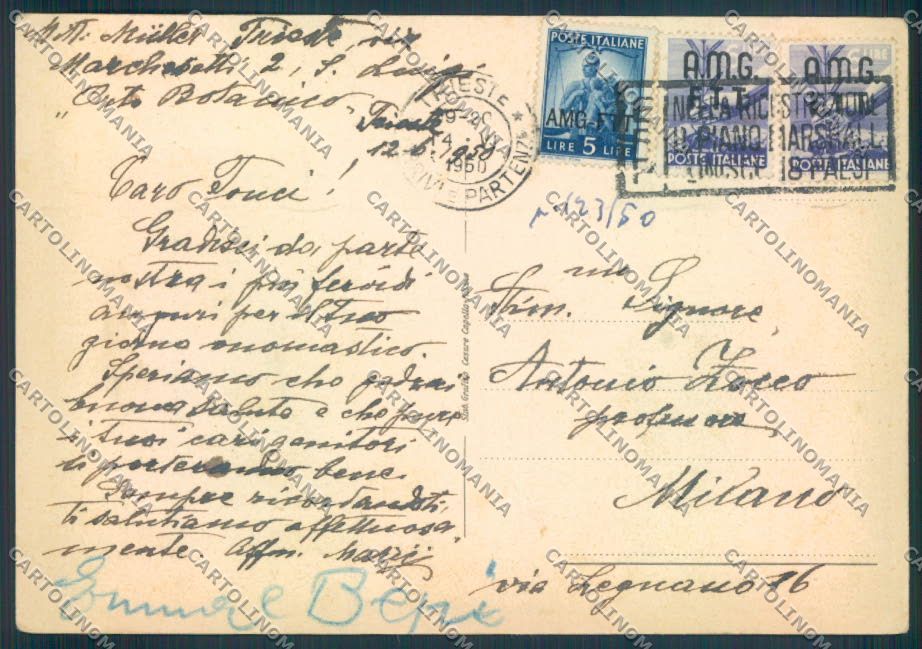 M. M. Müller Trieste, via
Marchesetti 2, S. Luigi
"Orto Botanico"
Trieste
12.6.1950
Caro Tonci!
Gradisci da parte
nostra i più fervidi
auguri per il Tuo
giorno onomastico.
Speriamo che godrai
buona salute e che pure
i tuoi cari genitori
si porteranno bene.
Sempre ricordandoti,
ti salutiamo affettuosa-
mente. Affm.
Bepi
TRIESTE
1950
PARTENZE
POSTE ITALIANE
AMG-FTT
LIRE 5 LIRE
LIRE
A.M.G.
F.T.T.
POSTE ITALIANE
LIRE
A.M.G.
POSTE ITALIANE
NELLA RICOSTRUZIONE
IL PIANO MARSHALL
UNISCE 18 PAESI
123/50
Signore,
Antonio Zocco
professore
Milano
via Legnano 26
Cesare Capello
CARTOLINOMANIA